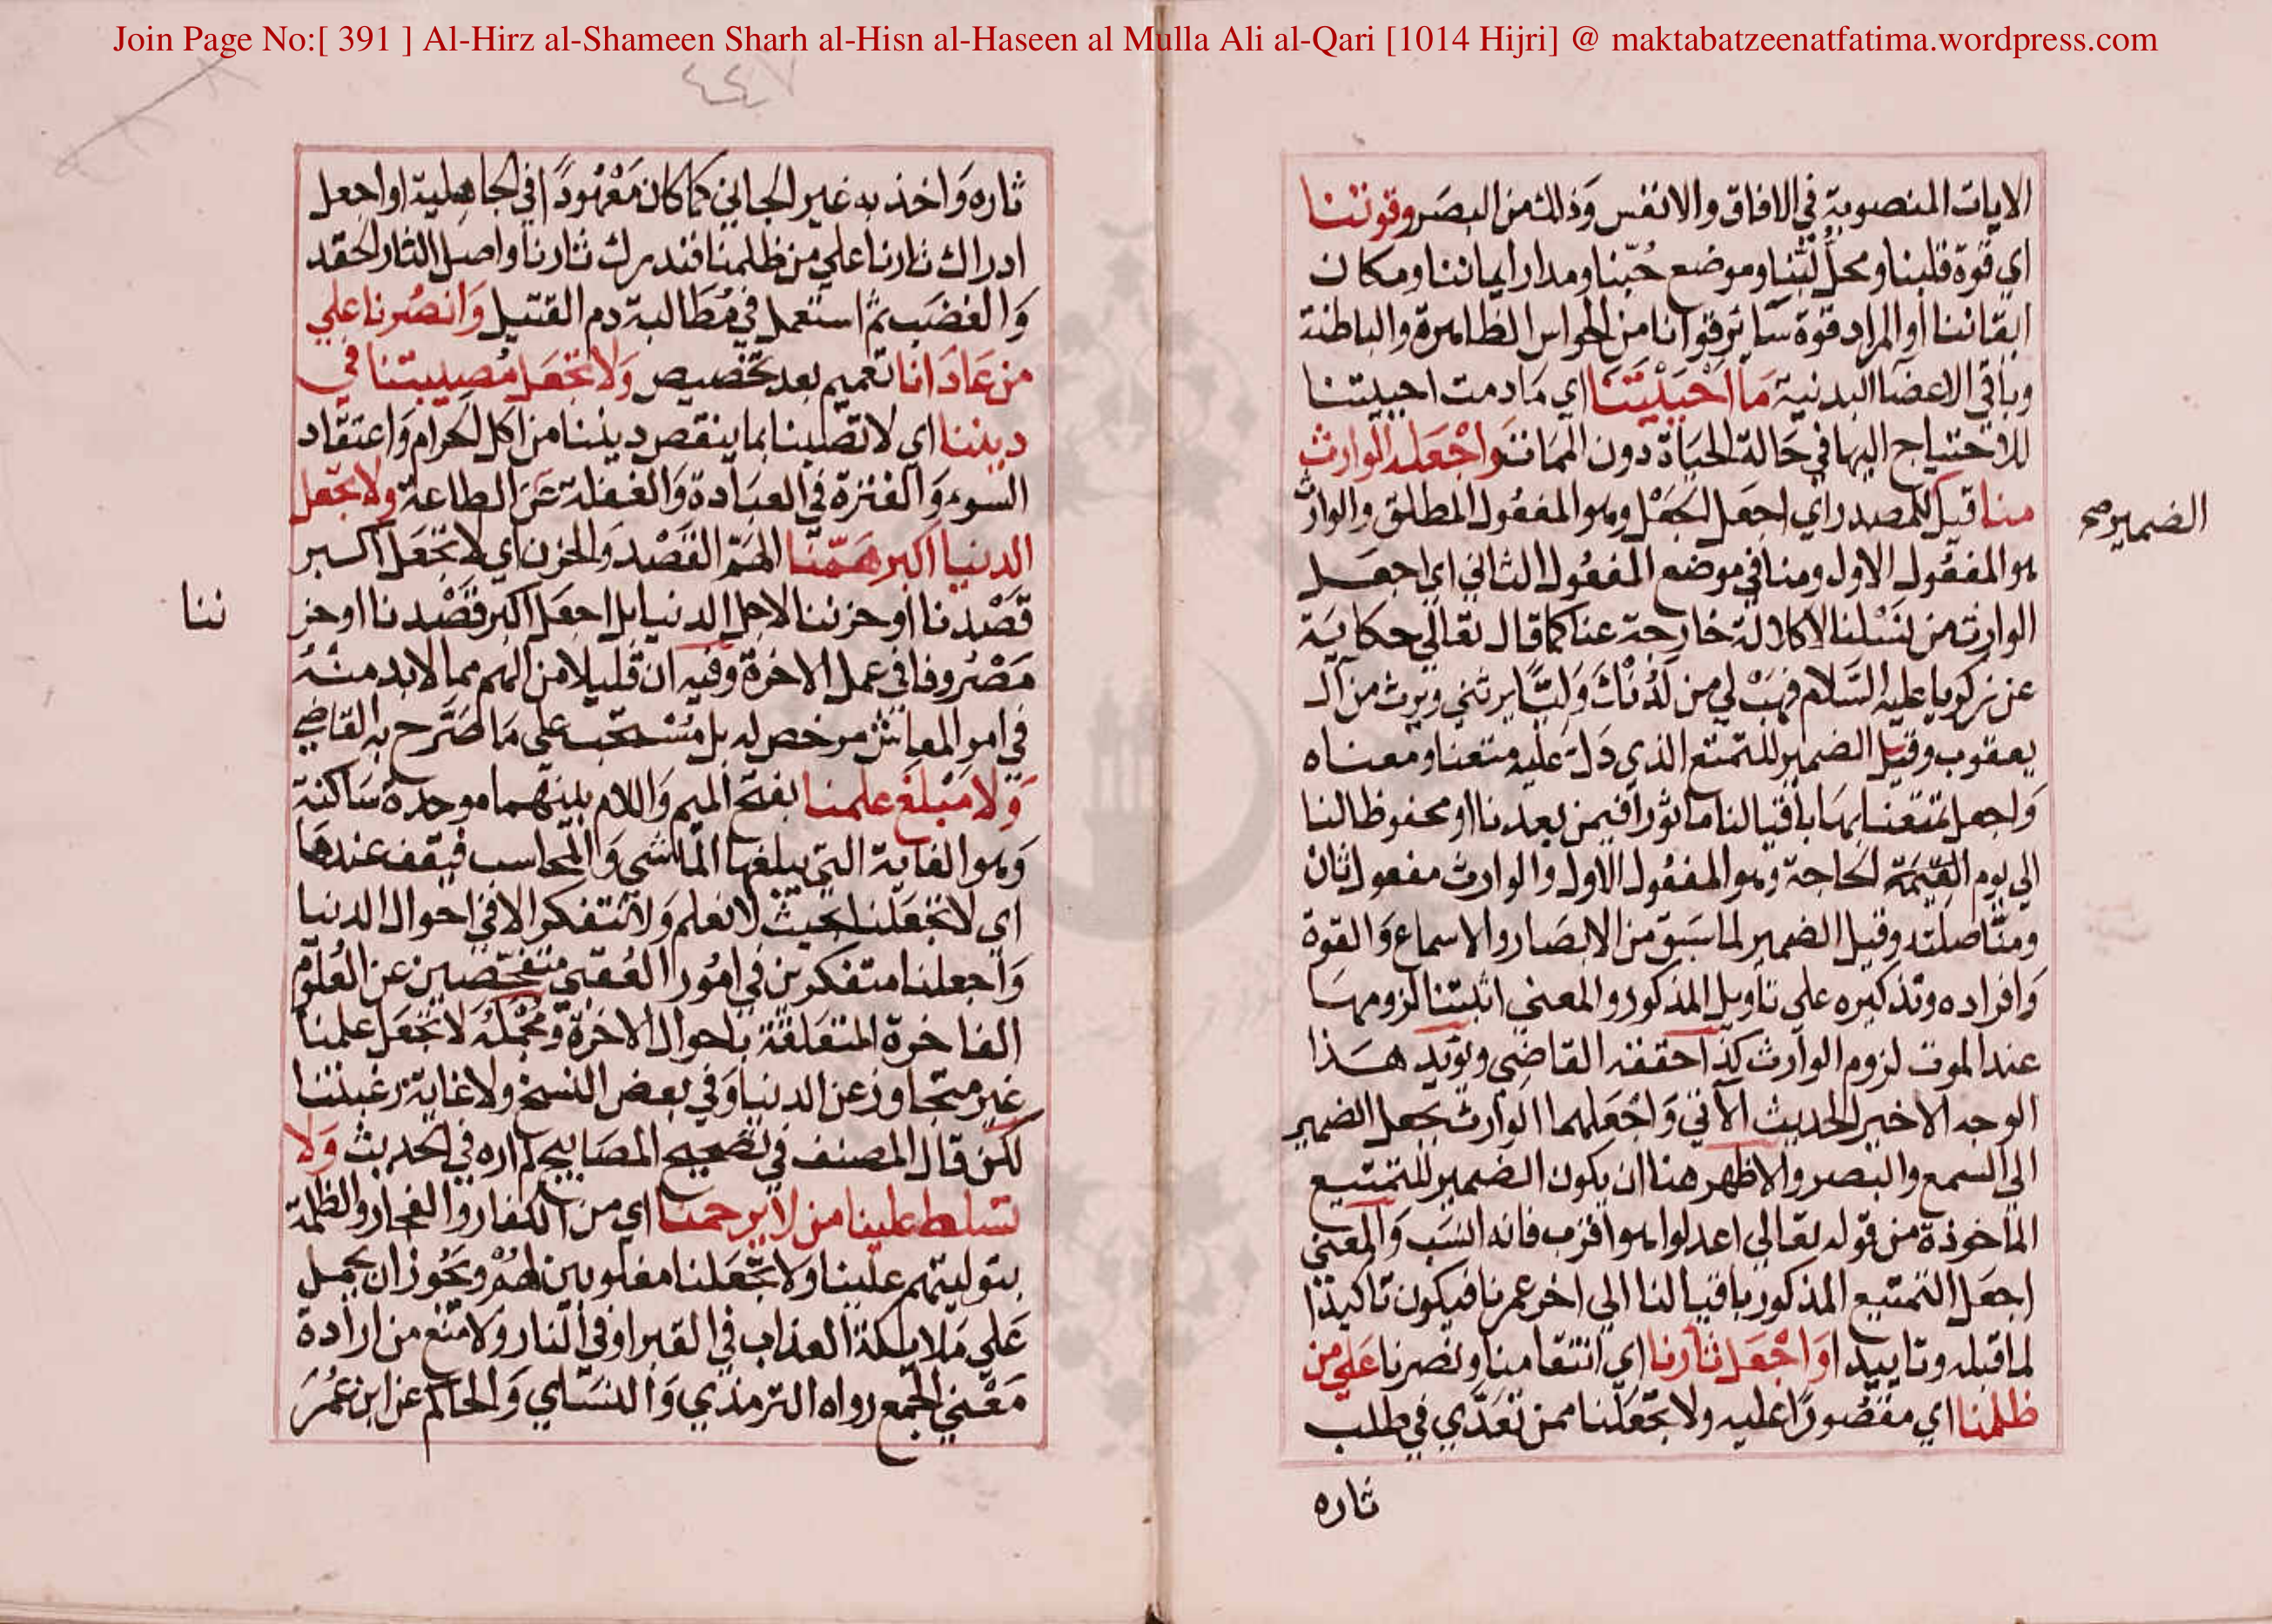 Join Page No:[ 391 ] Al-Hirz al-Shameen Sharh al-Hisn al-Haseen al Mulla Ali al-Qari [1014 Hijri] @ maktabatzeenatfatima.wordpress.com
الايات المنصوبة في الافاق والانفس وَذلك من البصَر وقوتنا
اي قوة قلبنا ومحل لبّنا وموضع حُبّنا ومدار ايماننا ومكان
ايقاننا او المراد قوة سَائر قوانا من الحواس الظاهرة والباطنة
وباقي الاعضا البدنية مَا اَحْيَيْتَنَا اي مَا دمت احييتنا
للاحتياج اليها في حَالة الحيَاة دون الممَات وَاجْعَله الوارث
منا قيل للمصدر اي اجعل الجَعْل وهو المفعُول المطلق والوارث
الضمير صح
هو المفعُول الاول ومنا في موضع المفعُول الثاني اي اجعَل
الوارث من نَسْلنا لا كلالة خارجة عنا كما قال تعَالي حكاية
عن زكريا عليه السَّلام فهَبْ لي من لَدُنْكَ وَليًّا يرثني ويرث من آل
يعقوب وقيل الضمير للتمتع الذي دَل عَليه متعنا ومعناه
وَاجعل تمتعنا بهَا باقيا لنا ماثورا فيمن بعدنا او محفوظا لنا
الي يوم القيٰمَة لحاجة وهو المفعُول الاول والوارث مفعول ثان
ومنّا صلته وقيل الضمير لما سَبق من الابصَار والاسماع وَالقوة
وَافراده وتذكيره علي تاويل المذكور والمعني اثبتنا لزومهَا
عند الموت لزوم الوارث كذا حققه القاضِي ويؤيد هَذا
الوجه الاخير الحديث الآتي وَاجْعَلهما الوارث بجعل الضمير
الي السمع والبصر والاظهر هنا ان يكون الضمير للتمتيع
الماخوذة من قوله تعَالي اعدلوا هو اقرب فانه انسَب وَالمعني
اجعَل التمتيع المذكور باقيا لنا الي اخر عمرنا فيكون تاكيدًا
لما قبله وتاييدا وَاجْعَل ثَارَنا اي انتقامنا ونصرنا عَلي من
ظلمنا اي مقصُورًا عليه ولا تجعَلنا ممن تعَدّي في طلب
ثاره
ثاره وَاخذ به غير الجاني كما كان مَعْهُودًا في الجاهلية او اجعل
ادراك ثارنا علي من ظلمنا فندرك ثارنا واصل الثار الحقد
وَالغضَب ثمّ استعمل في مُطَالبة دم القتيل وَانصُرنا علي
من عَادَانا تعميم بعد تخصيص وَلا تجعَل مُصيبتنا في
ديننا اي لا تصبنا بما ينقص ديننا من اكل الحرام وَاعتقاد
السوء وَالفترة في العبَادة وَالغفلة عَن الطاعة ولا تجعل
الدنيا اكبر هَمّنا الهَمّ القَصْد وَالحزن اي لا تجعَل اكبر
قَصْدنا او حزننا لاجل الدنيا بل اجعَل اكبر قَصْدنا او حز
ننا
مَصْرُوفا في عمل الاخرة وفيه ان قليلا من الهم مما لا بد منْهُ
في امر المعاش مرخص له بل مُسْتحب علي مَا صَرّح به القاضي
وَلا مَبْلغَ علمنا بفتح الميم وَاللام بينهما موحدة سَاكنة
وَهو الغاية التي يبلغها الماشي وَالمحاسب فيقف عندهَا
اي لا تجعَلنا بحيث لا نعلم وَلا نتفكر الا في احوال الدنيا
وَاجعلنا متفكرين في امُور العُقبي متفحّصين عن العُلوم
الفاخرة المتعَلقة باحوال الاخرة ومجْمَلُه لا تجعَل علمنا
غير متجاوز عن الدنيا وَفي بعض النسخ ولا غاية رغبتنا
لكن قال المصنف في تصحيح المصَابيح لم اره في الحديث وَلا
تسَلط علينا من لا يرحمنا اي من الكفار والفجار والظلمة
بتوليتهم علينا ولا تجعَلنا مغلوبين لهُمْ ويَجُوز ان يحمل
عَلي مَلايكة العذاب في القبر او في النار وَلا مَنْع من ارادة
مَعْني الجَمع رواه الترمذي وَالنسَاي وَالحاكم عن ابن عمُرَ